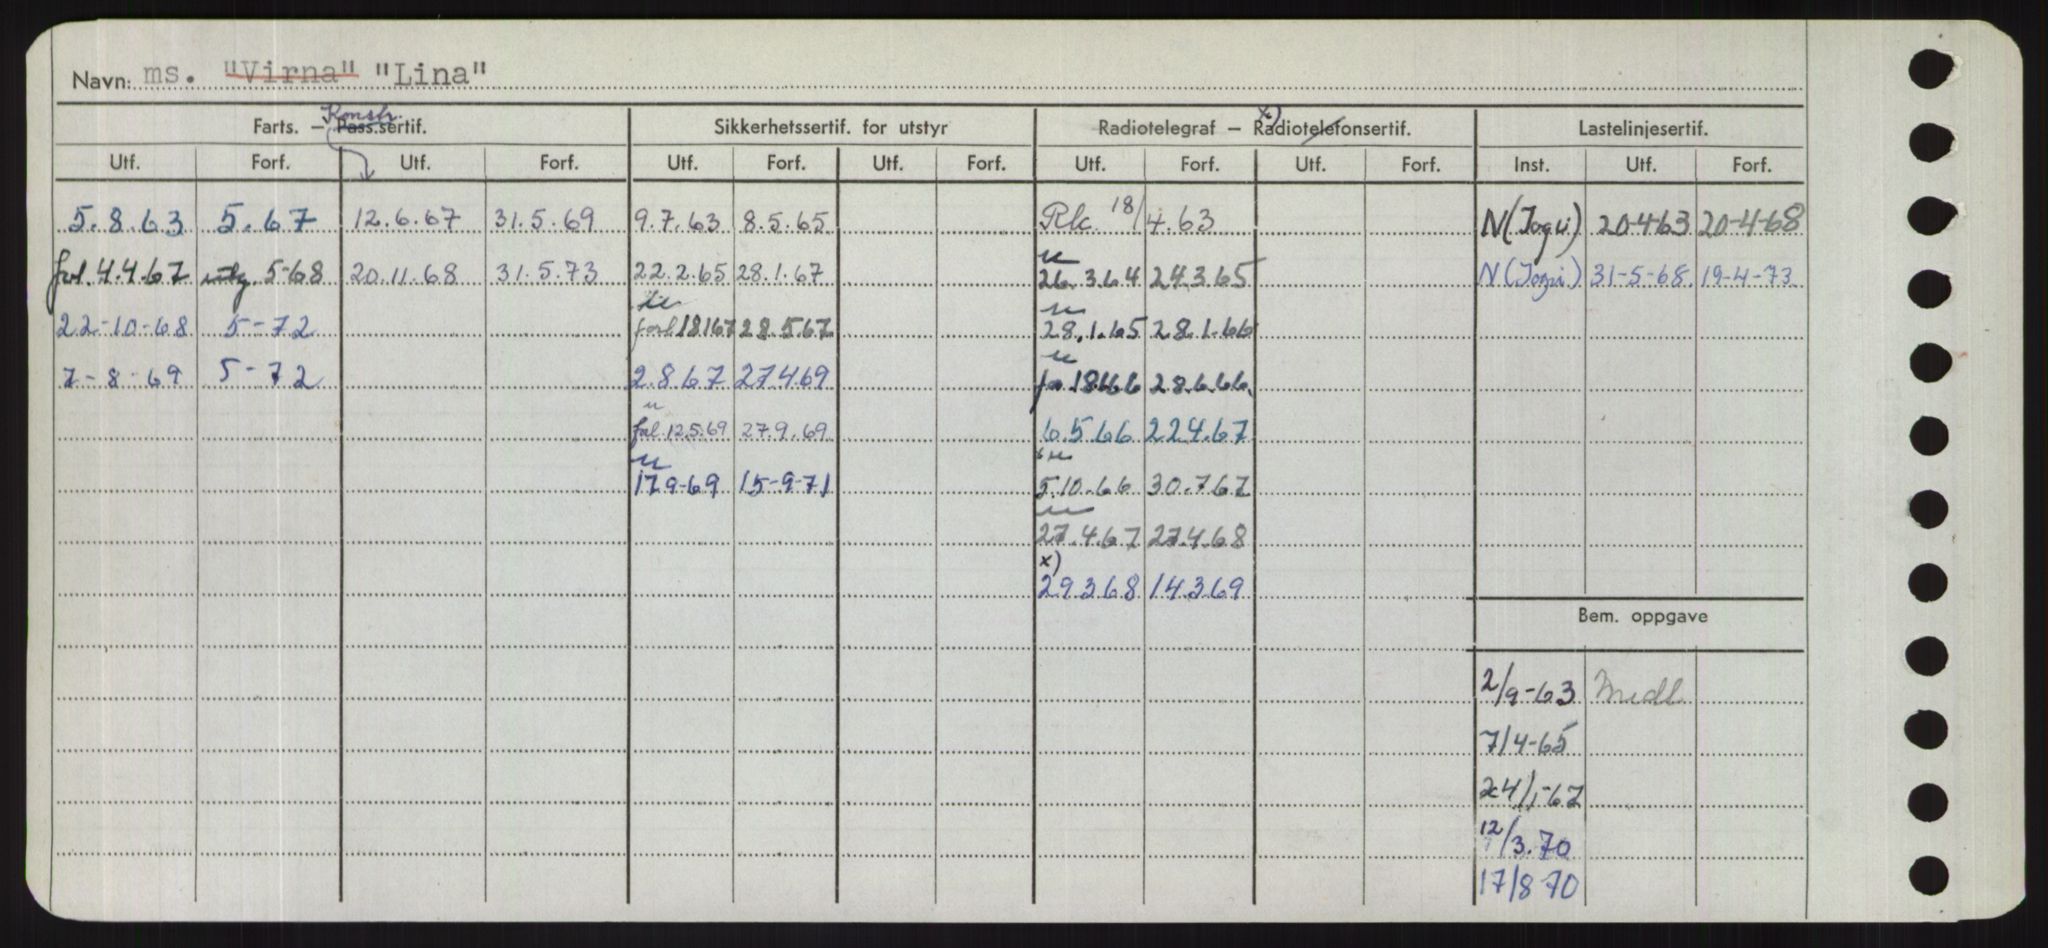 Navn: ms. "Virna" "Lina"
Konstr.
Farts. – Pass.sertif. Sikkerhetssertif. for utstyr Radiotelegraf – Radiotelefonsertif. x) Lastelinjesertif.
Utf. Forf. Utf. Forf. Utf. Forf. Utf. Forf. Utf. Forf. Utf. Forf. Inst. Utf. Forf.
5.8.63 5.67 12.6.67 31.5.69 9.7.63 8.5.65 Rk. 18/4.63 N(Togv) 20-4-63 20-4-68
forl. 4.4.67 5-68 20.11.68 31.5.73 22.2.65 28.1.67 26.3.64 24.3.65 N(Togv.) 31-5-68 19-4-73
22-10-68 5-72 forl 18167 28.5.67 28.1.65 28.1.66
7-8-69 5-72 2.8.67 27.4.69 28.6.66.
12.5.69 27.9.69 6.5.66 22.4.67
17.9-69 15-9-71 5.10.66 30.7.67
27.4.67 27.4.68
x)
29.3.68 14.3.69
Bem. oppgave
2/9-63 Medl
7/4-65
24/1-67
12/3.70
17/8 70